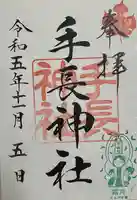 奉拝
手長神社
手長
神社
令和五年十一月五日